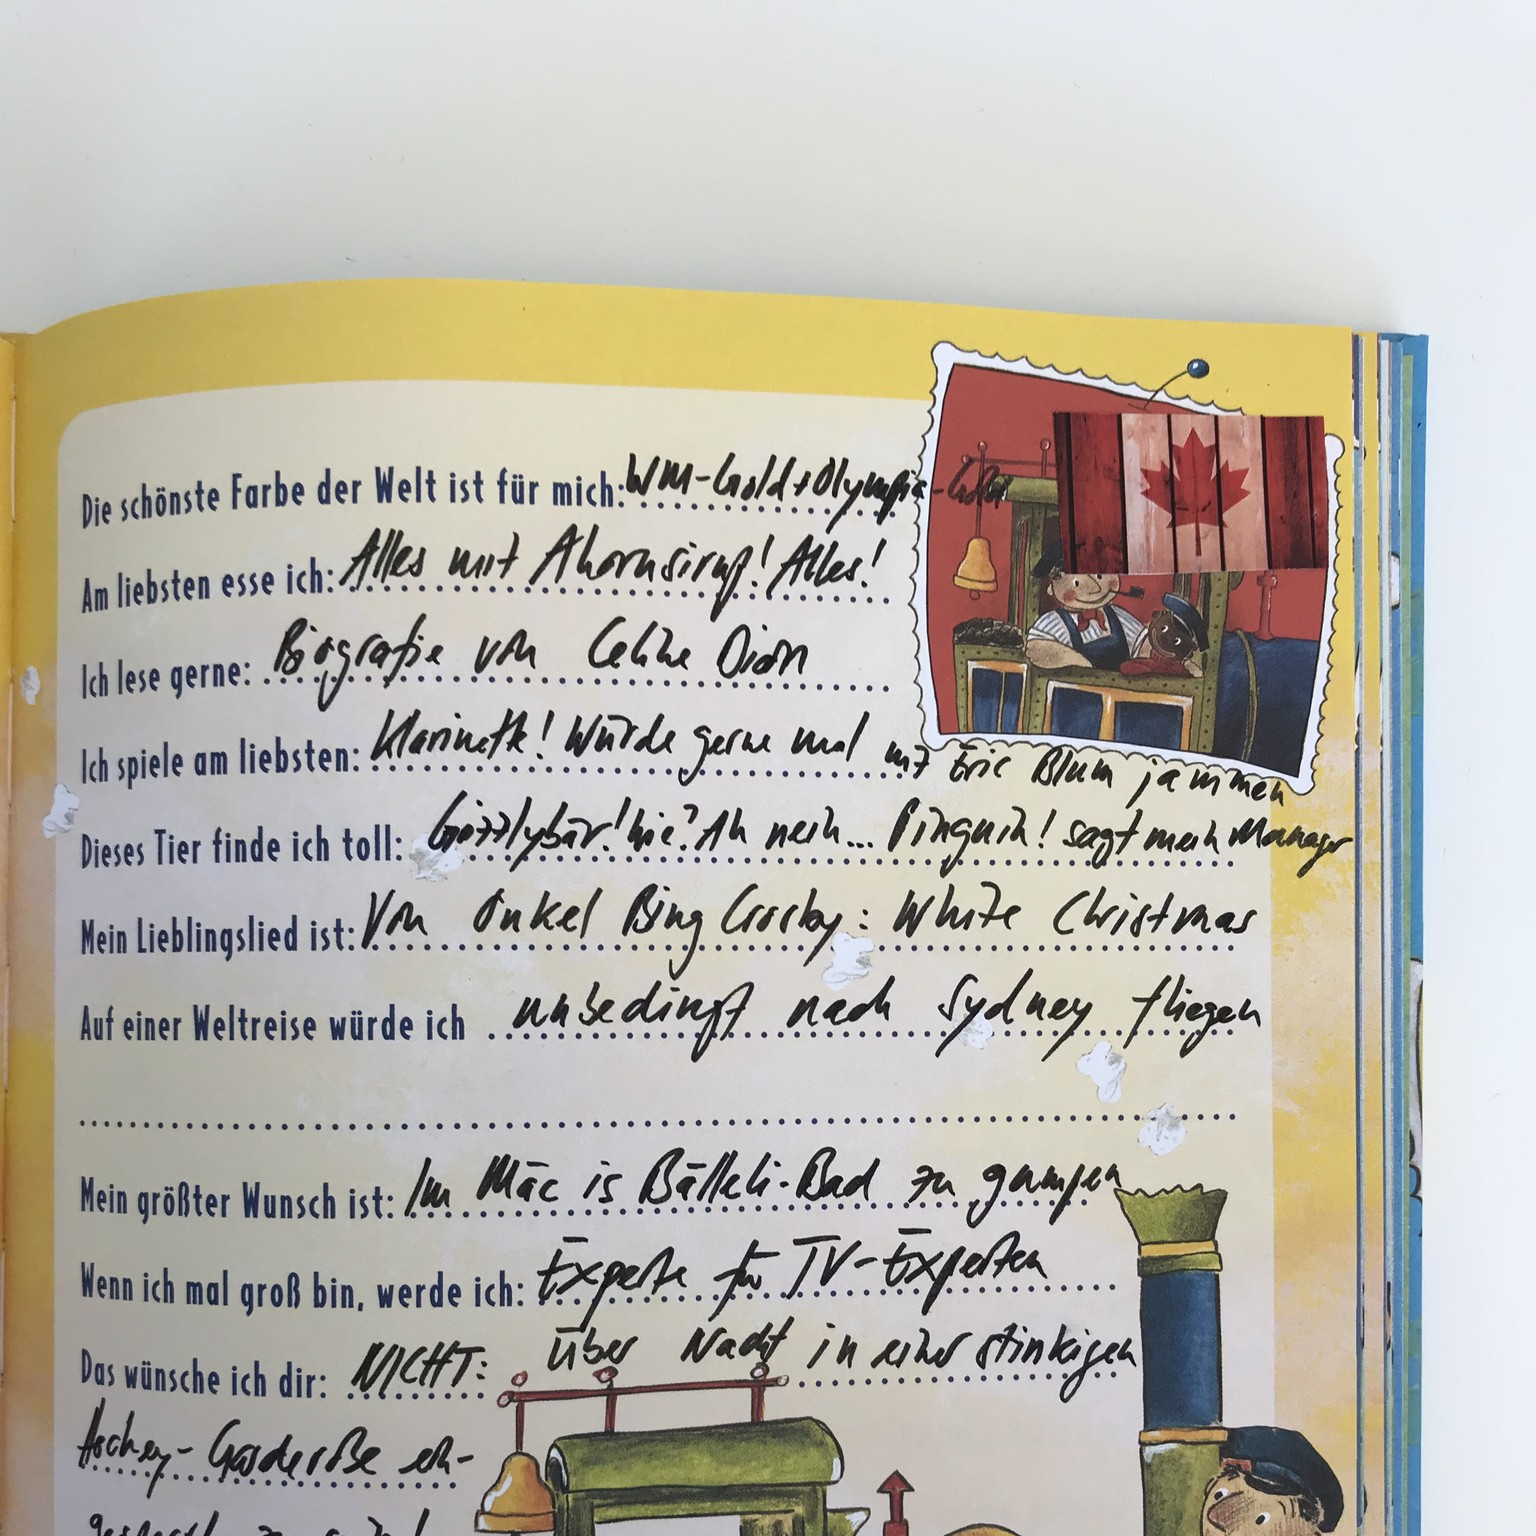 Die schönste Farbe der Welt ist für mich: WM-Gold+Olympia-Gold
Am liebsten esse ich: Alles mit Ahornsirup! Alles!
Ich lese gerne: Biografie von Celine Dion
Ich spiele am liebsten: Klarinette! Würde gerne mal mit Eric Blum jammen
Dieses Tier finde ich toll: Grizzlybär! Wie? Ah nein... Pinguin! sagt mein Manager
Mein Lieblingslied ist: Von Onkel Bing Crosby: White Christmas
Auf einer Weltreise würde ich unbedingt nach Sydney fliegen
Mein größter Wunsch ist: Im Mäc is Bälleli-Bad zu gumpen
Wenn ich mal groß bin, werde ich: Experte für TV-Experten
Das wünsche ich dir: NICHT: Über Nacht in einer stinkigen
Hockey-Garderobe ein-